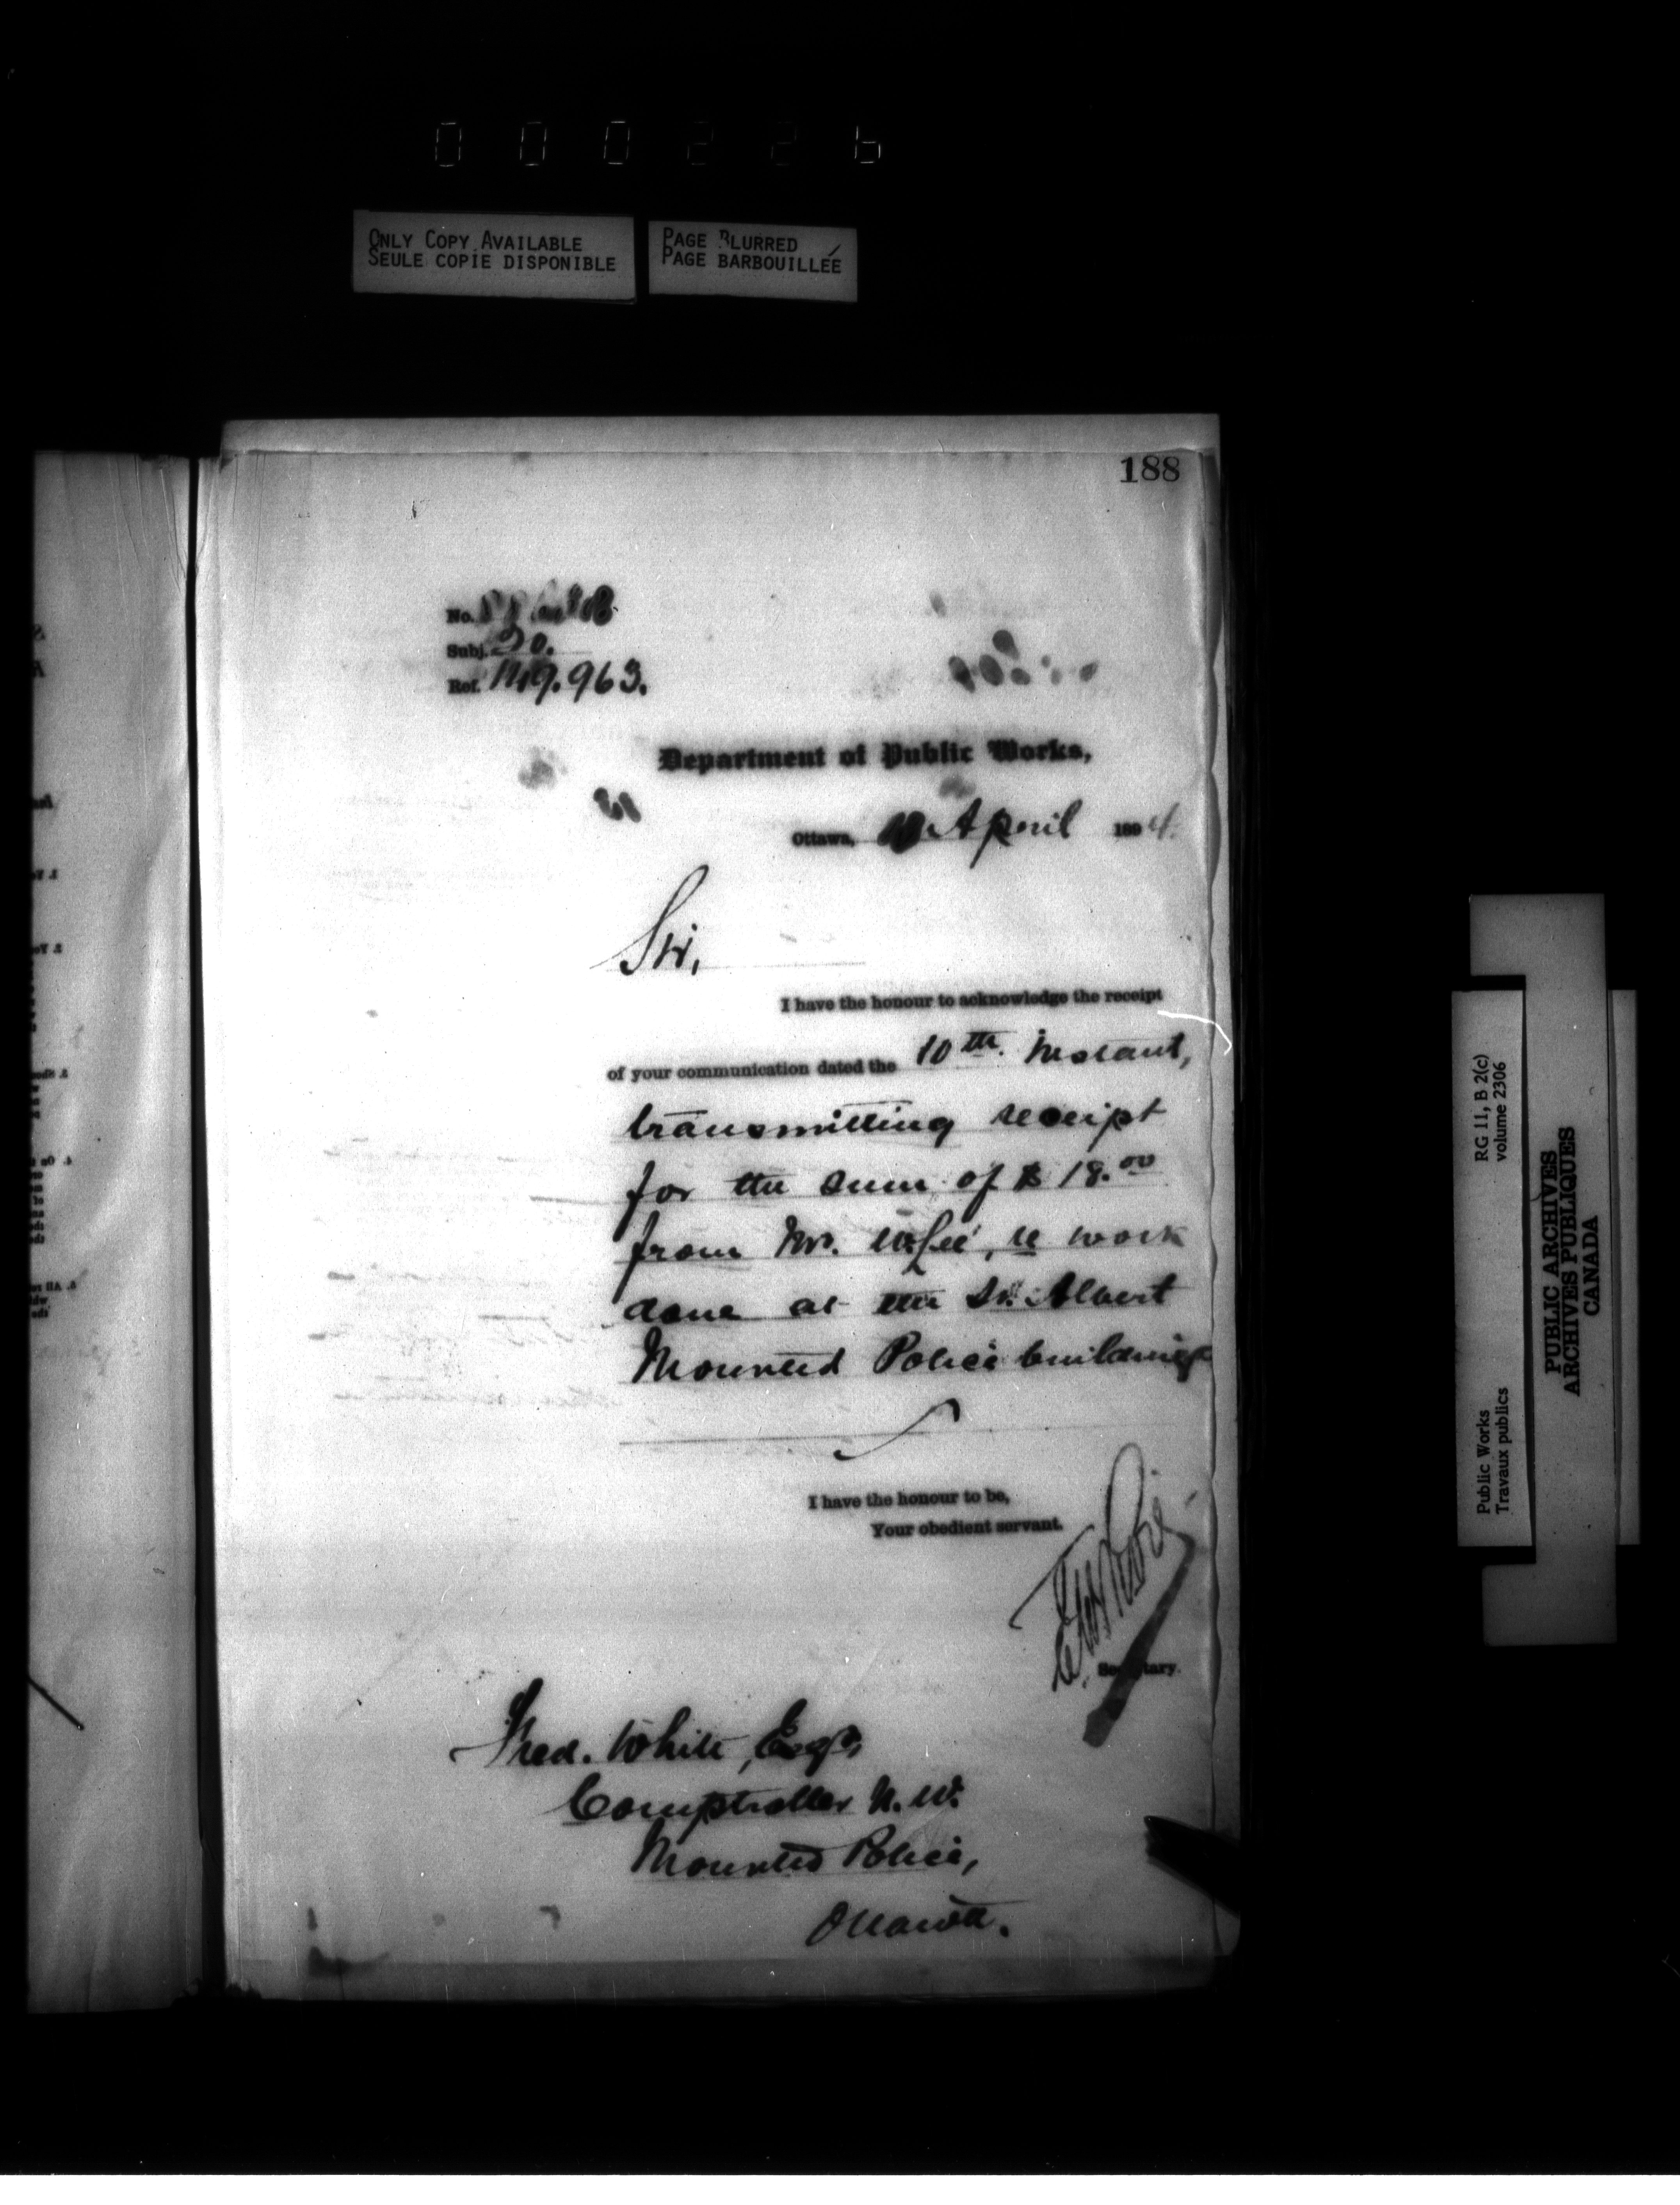 000226
ONLY COPY AVAILABLE
SEULE COPIE DISPONIBLE
PAGE BLURRED
PAGE BARBOUILLÉE
188
No.
Subj. 30.
Ref. 149.963.
Department of Public Works,
Ottawa, April 1894.
Sir,
I have the honour to acknowledge the receipt
of your communication dated the 10th. instant,
transmitting receipt
for the sum of $18.00
from Mr. Lee, re work
done at the St. Albert
Mounted Police buildings
I have the honour to be,
Your obedient servant.
Secretary.
Fred. White, Esqr,
Comptroller N. W.
Mounted Police,
Ottawa.
RG 11, B 2(c)
volume 2306
Public Works
Travaux publics
PUBLIC ARCHIVES
ARCHIVES PUBLIQUES
CANADA